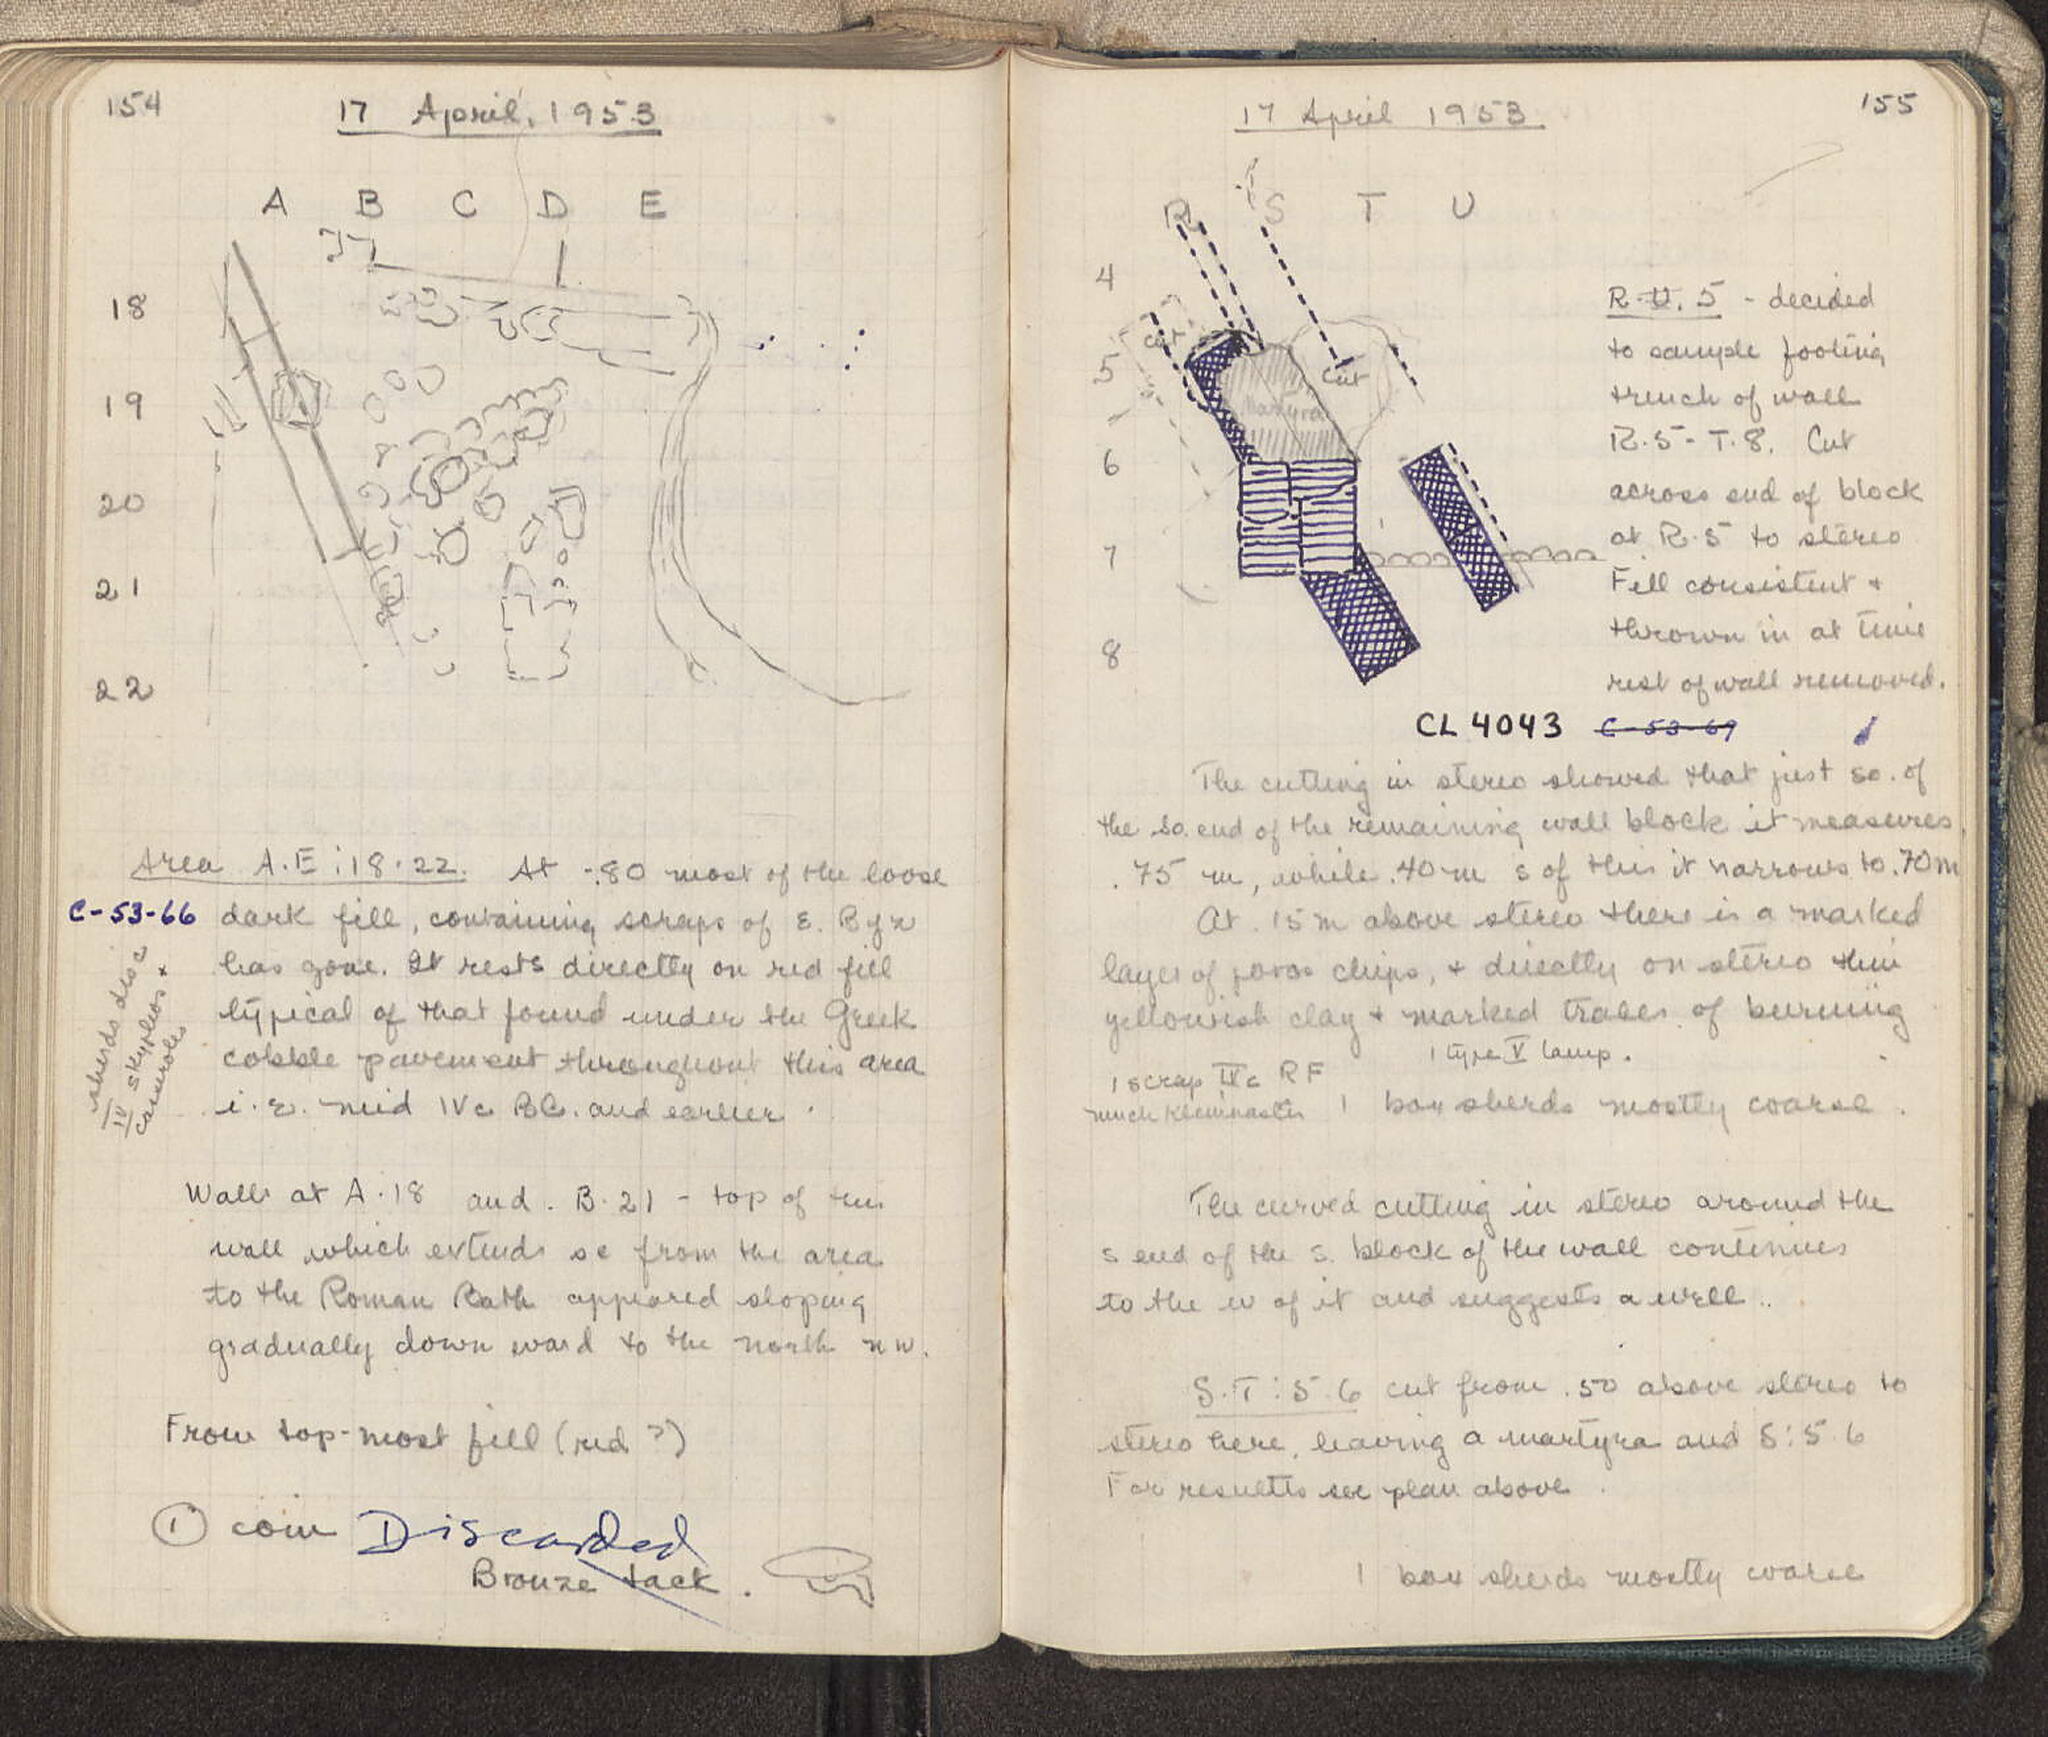 154
17 April, 1953
A B C D E
18
19
20
21
22
Area A.E:18.22. At -.80 most of the loose
C-53-66 dark fill, containing scraps of E. Byz
has gone. It rests directly on red fill
typical of that found under the Greek
cobble pavement throughout this area
i.e. mid IVc BC. and earlier.
sherds disc
IV skyphos +
casserole
Walls at A.18 and B.21 - top of
wall which extends se from the area
to the Roman Bath appeared sloping
gradually down ward to the north nw.
From top-most fill (red?)
1 coin Discarded
Bronze tack.
155
17 April 1953
R S T U
4
5
6
7
8
cut
cut
Martyra
R-U. 5 - decided
to sample footing
trench of wall
R.5-T.8. Cut
across end of block
at R.5 to stereo
Fill consistent +
thrown in at time
rest of wall removed.
CL 4043 C-53-69
The cutting in stereo showed that just so. of
the so. end of the remaining wall block it measures
.75 m, while .40m s of this it narrows to .70m
At .15m above stereo there is a marked
layer of poros chips, + directly on stereo thin
yellowish clay + marked traces of burning
1 type V lamp.
1 scrap IVc RF
much Kleinmaster 1 box sherds mostly coarse.
The curved cutting in stereo around the
s end of the s. block of the wall continues
to the w of it and suggests a well..
S.T:5.6 cut from .50 above stereo to
stereo here, leaving a martyra and S:5.6
For results see plan above.
1 box sherds mostly coarse